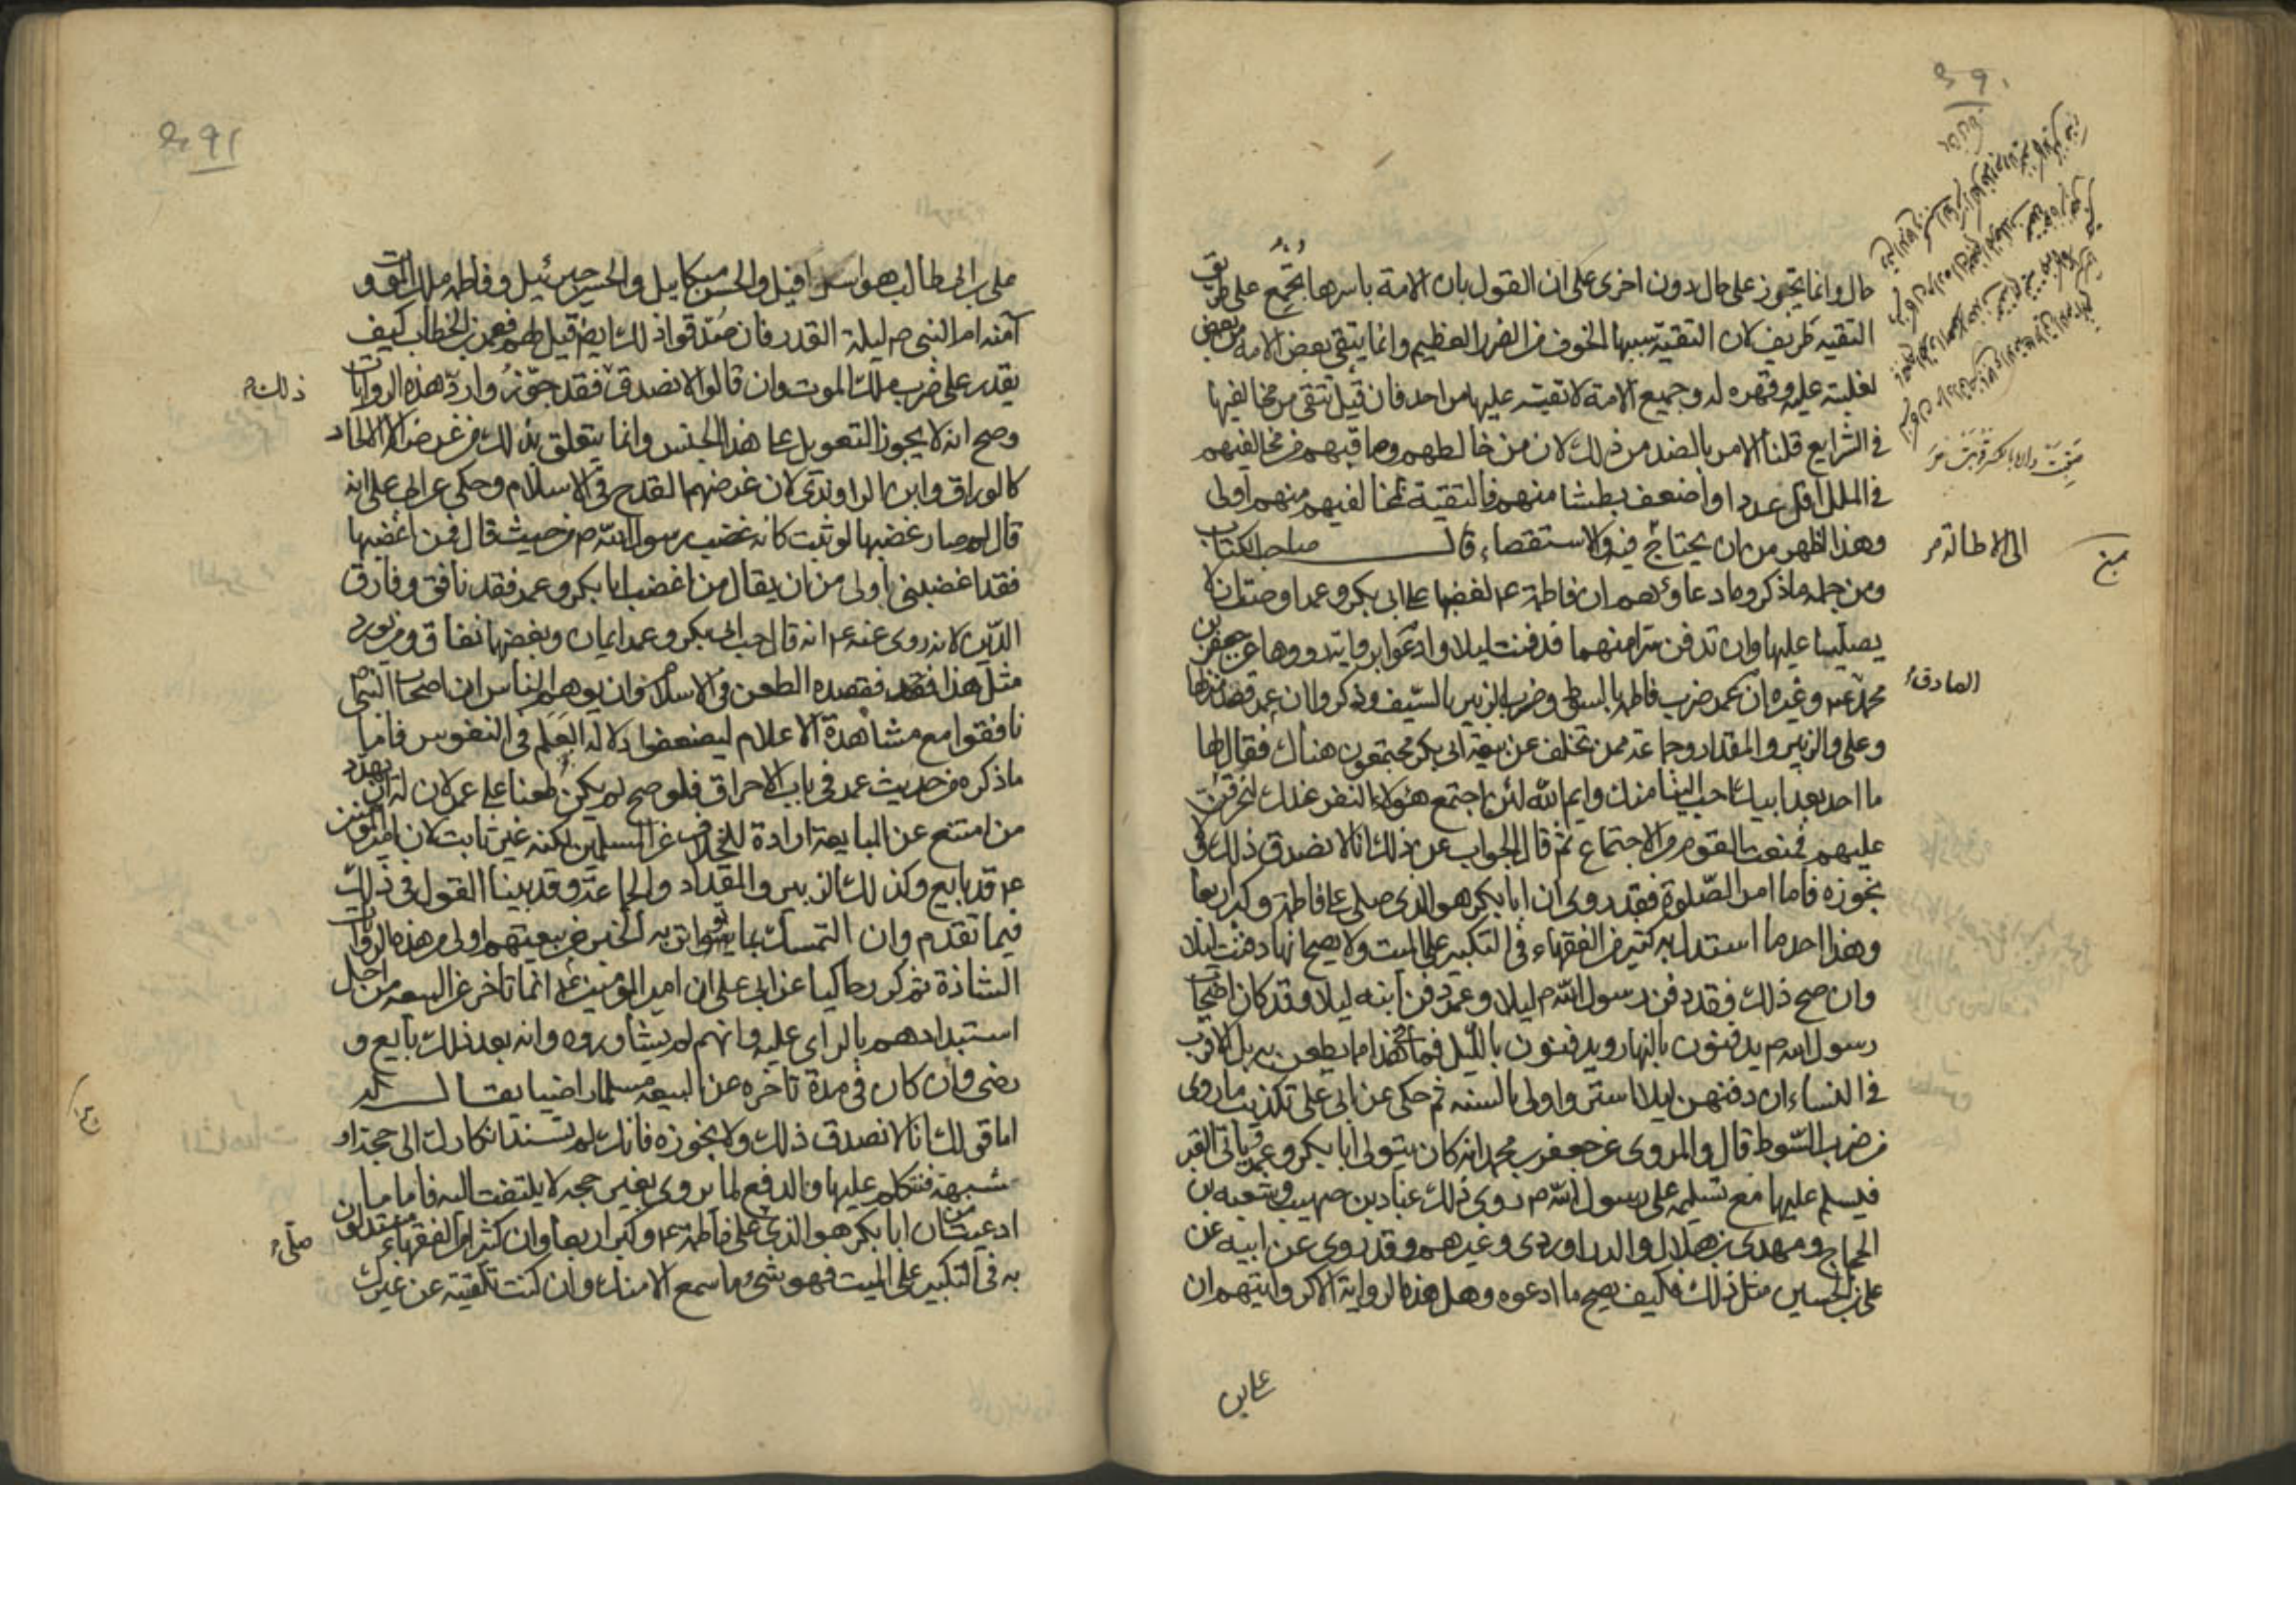 حال وانما يجوز على حال دون اخرى على ان القول بان الامة باسرها تجمع على طريق
التقيه طريف لان التقية سببها الخوف من الضرر العظيم وانما يتقى بعض الامة من بعض
لغلبته عليه وقهره له وجميع الامة لا تقية عليها من احد فان قيل تتقى من مخالفيها
في الشرايع قلنا الامر بالضد من ذلك لان من خالطهم وصاقبهم من مخالفيهم
في الملل اقل عددا واضعف بطشا منهم فالتقية لمخالفيهم منهم اولى
وهذا اظهر من ان يحتاج فيه والاستقصاء قال صاحب الكتاب
الى الاطالة
ومن جملة ما ذكروه ما دعاؤهم ان فاطمة ع لغضبها على ابى بكر وعمر اوصت ان لا
يصليا عليها وان تدفن سرا منهما فدفنت ليلا وادعوا برواية رووها عن جعفر بن
الصادق
محمد ع وغيره ان عمر ضرب فاطمة بالسوط وضرب الزبير بالسيف وذكروا ان عمر قصد منزلها
وعلى والزبير والمقداد وجماعة ممن تخلف عن بيعة ابى بكر مجتمعون هناك فقال لها
ما احد بعد ابيك احب الينا منك وايم الله لئن اجتمع هؤلاء النفر عندك لنحرقن
عليهم فمنعت القوم من الاجتماع ثم قال الجواب عن ذلك انا لا نصدق ذلك ولا
نجوزه فاما امر الصلوة فقد روى ان ابا بكر هو الذى صلى على فاطمة وكبر اربعا
وهذا احد ما استدل به كثير من الفقهاء فى التكبير على الميت ولا يصح انها دفنت ليلا
وان صح ذلك فقد دفن رسول الله ص ليلا وعمر دفن ابنه ليلا وقد كان اصحاب
رسول الله ص يدفنون بالنهار ويدفنون بالليل فما فى هذا ما يطعن به بل الاقرب
في النساء ان دفنهن ليلا استر واولى بالسنه ثم حكى عن ابى على تكذيب ما روى
من ضرب السوط قال والمروى عن جعفر بن محمد انه كان يتولى ابا بكر وعمر وياتى القبر
فيسلم عليها مع تسليمه على رسول الله ص روى ذلك عباد بن صهيب وشعبه بن
الحجاج ومهدى بن هلال والدراوردى وغيرهم وقد روى عن ابيه عن
على بن الحسين مثل ذلك فكيف يصح ما ادعوه وهل هذه الرواية الا كروايتهم ان
على بن
٤٩١
على بن ابى طالب هو اسرافيل والحسن ميكاييل والحسين جبرئيل وفاطمه ملك الموت و
آمنه ام النبى ص ليلة القدر فان صدقوا ذلك ايضا قيل لهم فعمر بن الخطاب كيف
يقدر على ضرب ملك الموت وان قالوا لا نصدق فقد جوزوا رد هذه الروايات
ذلك
وصح انه لا يجوز التعويل على هذا الجنس وانما يتعلق بذلك من غرضه الالحاد
كالوراق وابن الراوندى لان غرضهما القدح فى الاسلام وحكى عن ابى على انه
قال لم صار غضبها لو ثبت كانه غضب رسول الله ص من حيث قال فمن اغضبها
فقد اغضبنى باولى من ان يقال من اغضب ابا بكر وعمر فقد نافق وفارق
الدين لانه روى عنه ع انه قال حب ابى بكر وعمر ايمان وبغضهما نفاق ومن يورد
مثل هذا فقصده الطعن فى الاسلام وان يوهم الناس ان اصحاب النبى ص
نافقوا مع مشاهدة الاعلام ليضعفوا دلالة العلم فى النفوس فاما
ما ذكره من حديث عمر فى باب الاحراق فلو صح لم يكن طعنا على عمر لان له ان يهدد
من امتنع عن المبايعة ارادة للخلاف على المسلمين لكنه غير ثابت لان امير المؤمنين
ع قد بايع وكذلك الزبير والمقداد والجماعة وقد بينا القول فى ذلك
فيما تقدم وان التمسك بما يتواتر به الخبر من بيعتهم اولى من هذه الروايات
الشاذة ثم ذكر حاكيا عن ابى على ان امير المؤمنين ع انما تاخر عن البيعه من اجل
استبدادهم بالراى عليه وانهم لم يشاوروه وانه بعد ذلك بايع و
رضى وان كان فى مدة تاخره عن البيعه مسلما راضيا يقال له
اما قولك انا لا نصدق ذلك ولا نجوزه فانك لم تسند انكارك الى حجة او
شبهة فنتكلم عليها والدفع لما يروى بغير حجه لا يلتفت اليه فاما ما
ادعيت من ان ابا بكر هو الذى صلى على فاطمة ع وكبر اربعا وان كثيرا من الفقهاء يستدلون
صلى
به فى التكبير على الميت فهو شىء ما سمع الا منك وان كنت تلقيته عن غيرك